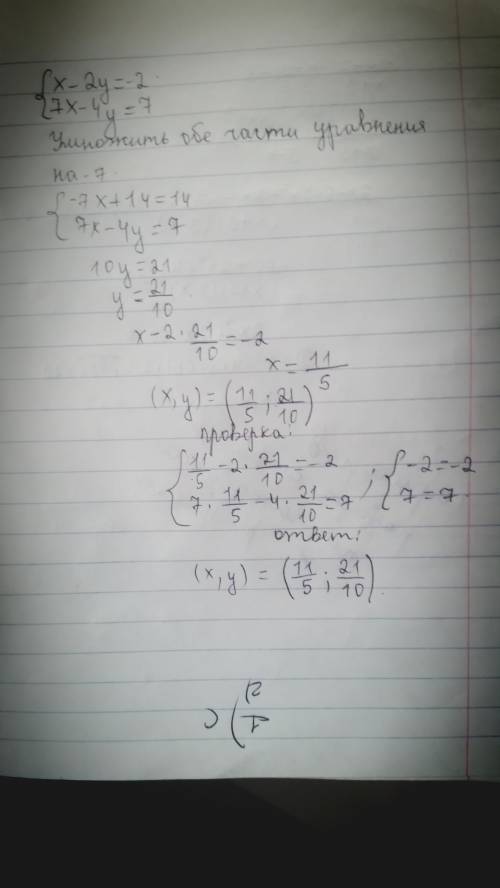 {x-2y=-2
7x-4y=7
Умножить обе части уравнения
на -7.
{-7x+14=14
7x-4y=7
10y=21
y=21/10
x-2·21/10=-2
x=11/5
(x,y)=(11/5;21/10)
проверка:
{11/5-2·21/10=-2 ; {-2=-2
7·11/5-4·21/10=7 7=7.
ответ:
(x,y)=(11/5;21/10).